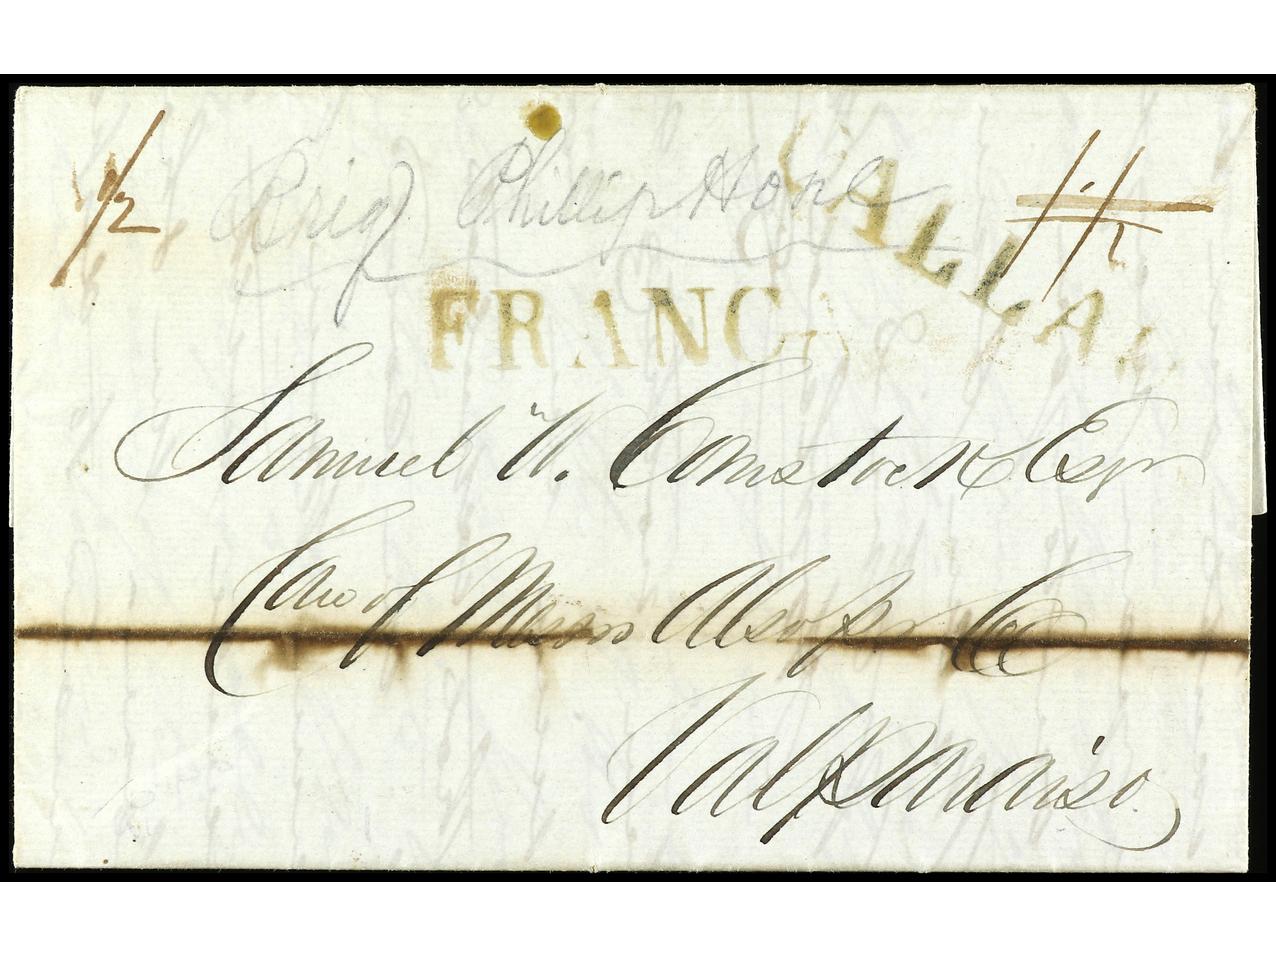 1/2
Brig Phillip Hone
CALLAO
FRANCA
Samuel W. Comstock Esqr
Care of Messrs Alsop & Co
Valparaiso